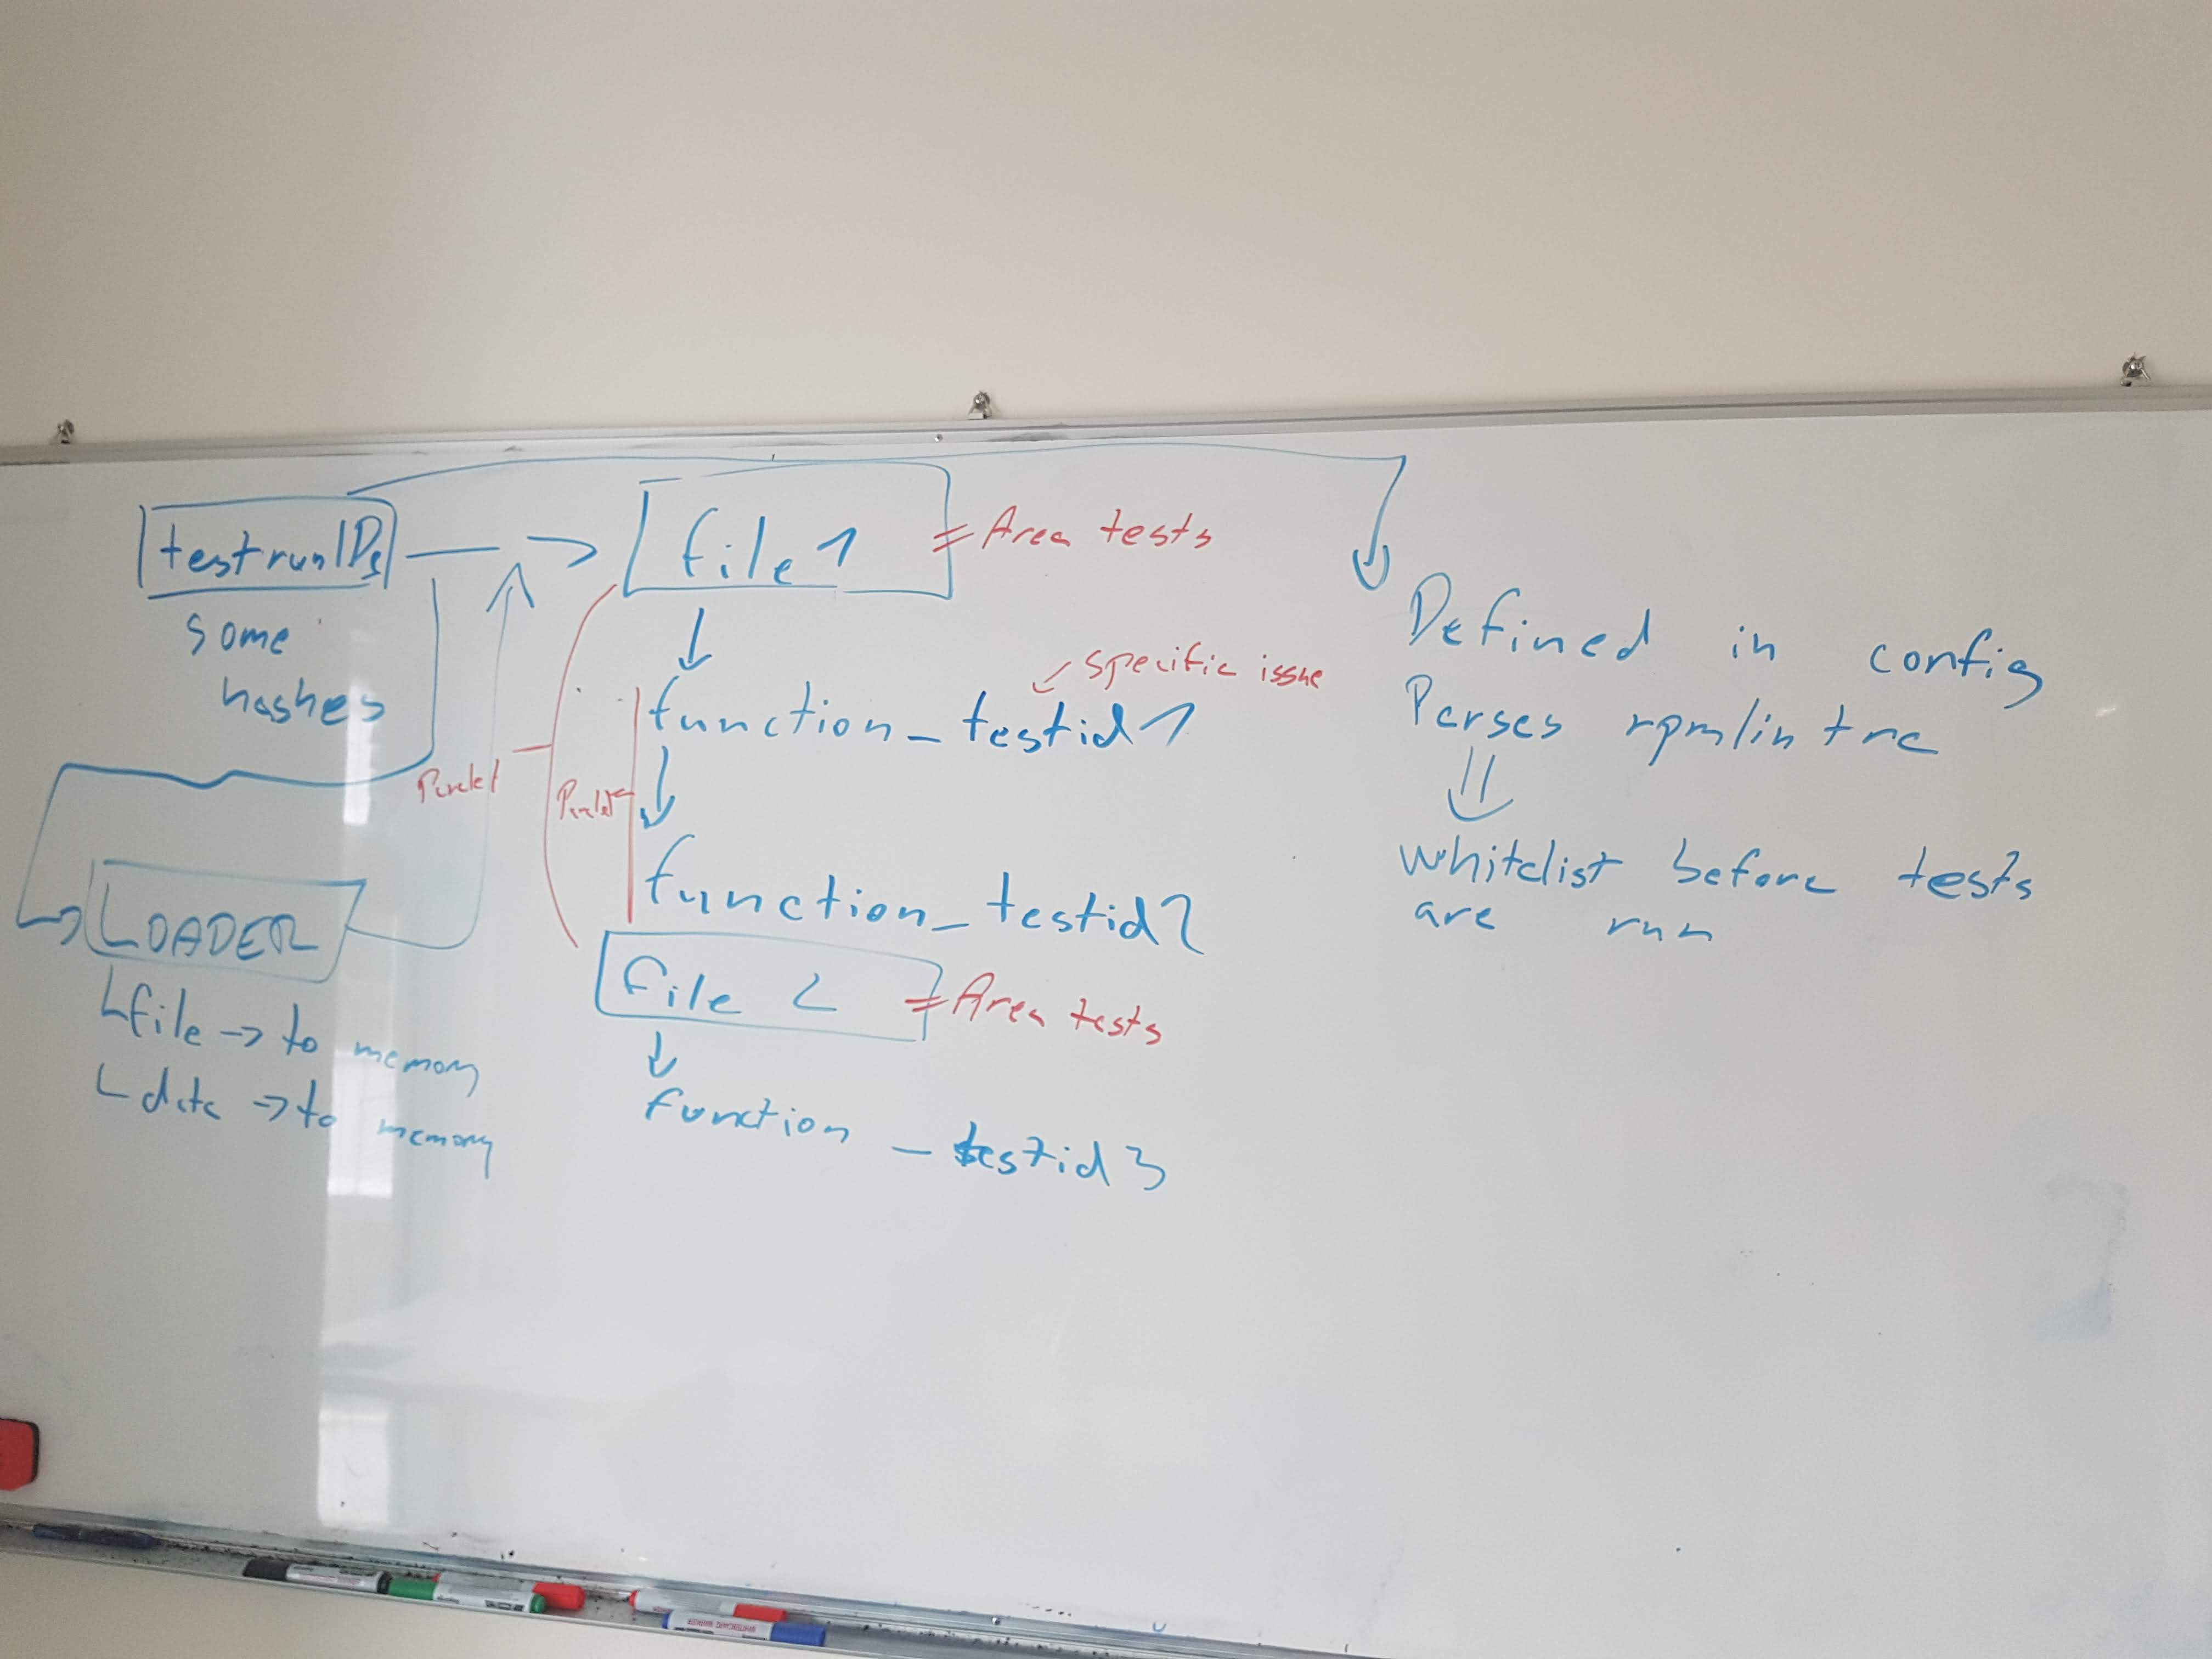 testrunIDs
some
hashes
LOADER
file -> to memory
data -> to memory
file 1
= Area tests
specific issue
function_testid1
function_testid2
file 2
= Area tests
function _ testid3
Defined in config
Parses rpmlintrc
whitelist before tests
are run